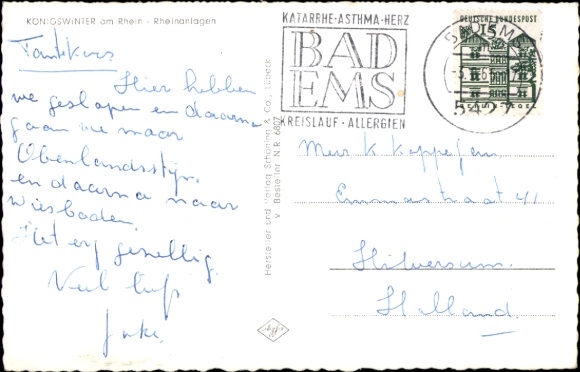 KÖNIGSWINTER am Rhein - Rheinanlagen
Hier hebben
we geslapen en daarna
gaan we naar
en daarna naar
Wiesbaden.
Het erg gezellig.
Veel liefs
Hersteller und Verlag Schöning & Co., Lübeck
v. Besteller N.R. 6807
KATARRHE·ASTHMA·HERZ
BAD
EMS
KREISLAUF·ALLERGIEN
DEUTSCHE BUNDESPOST
5427
Emmastraat 41
Hilversum.
Holland.